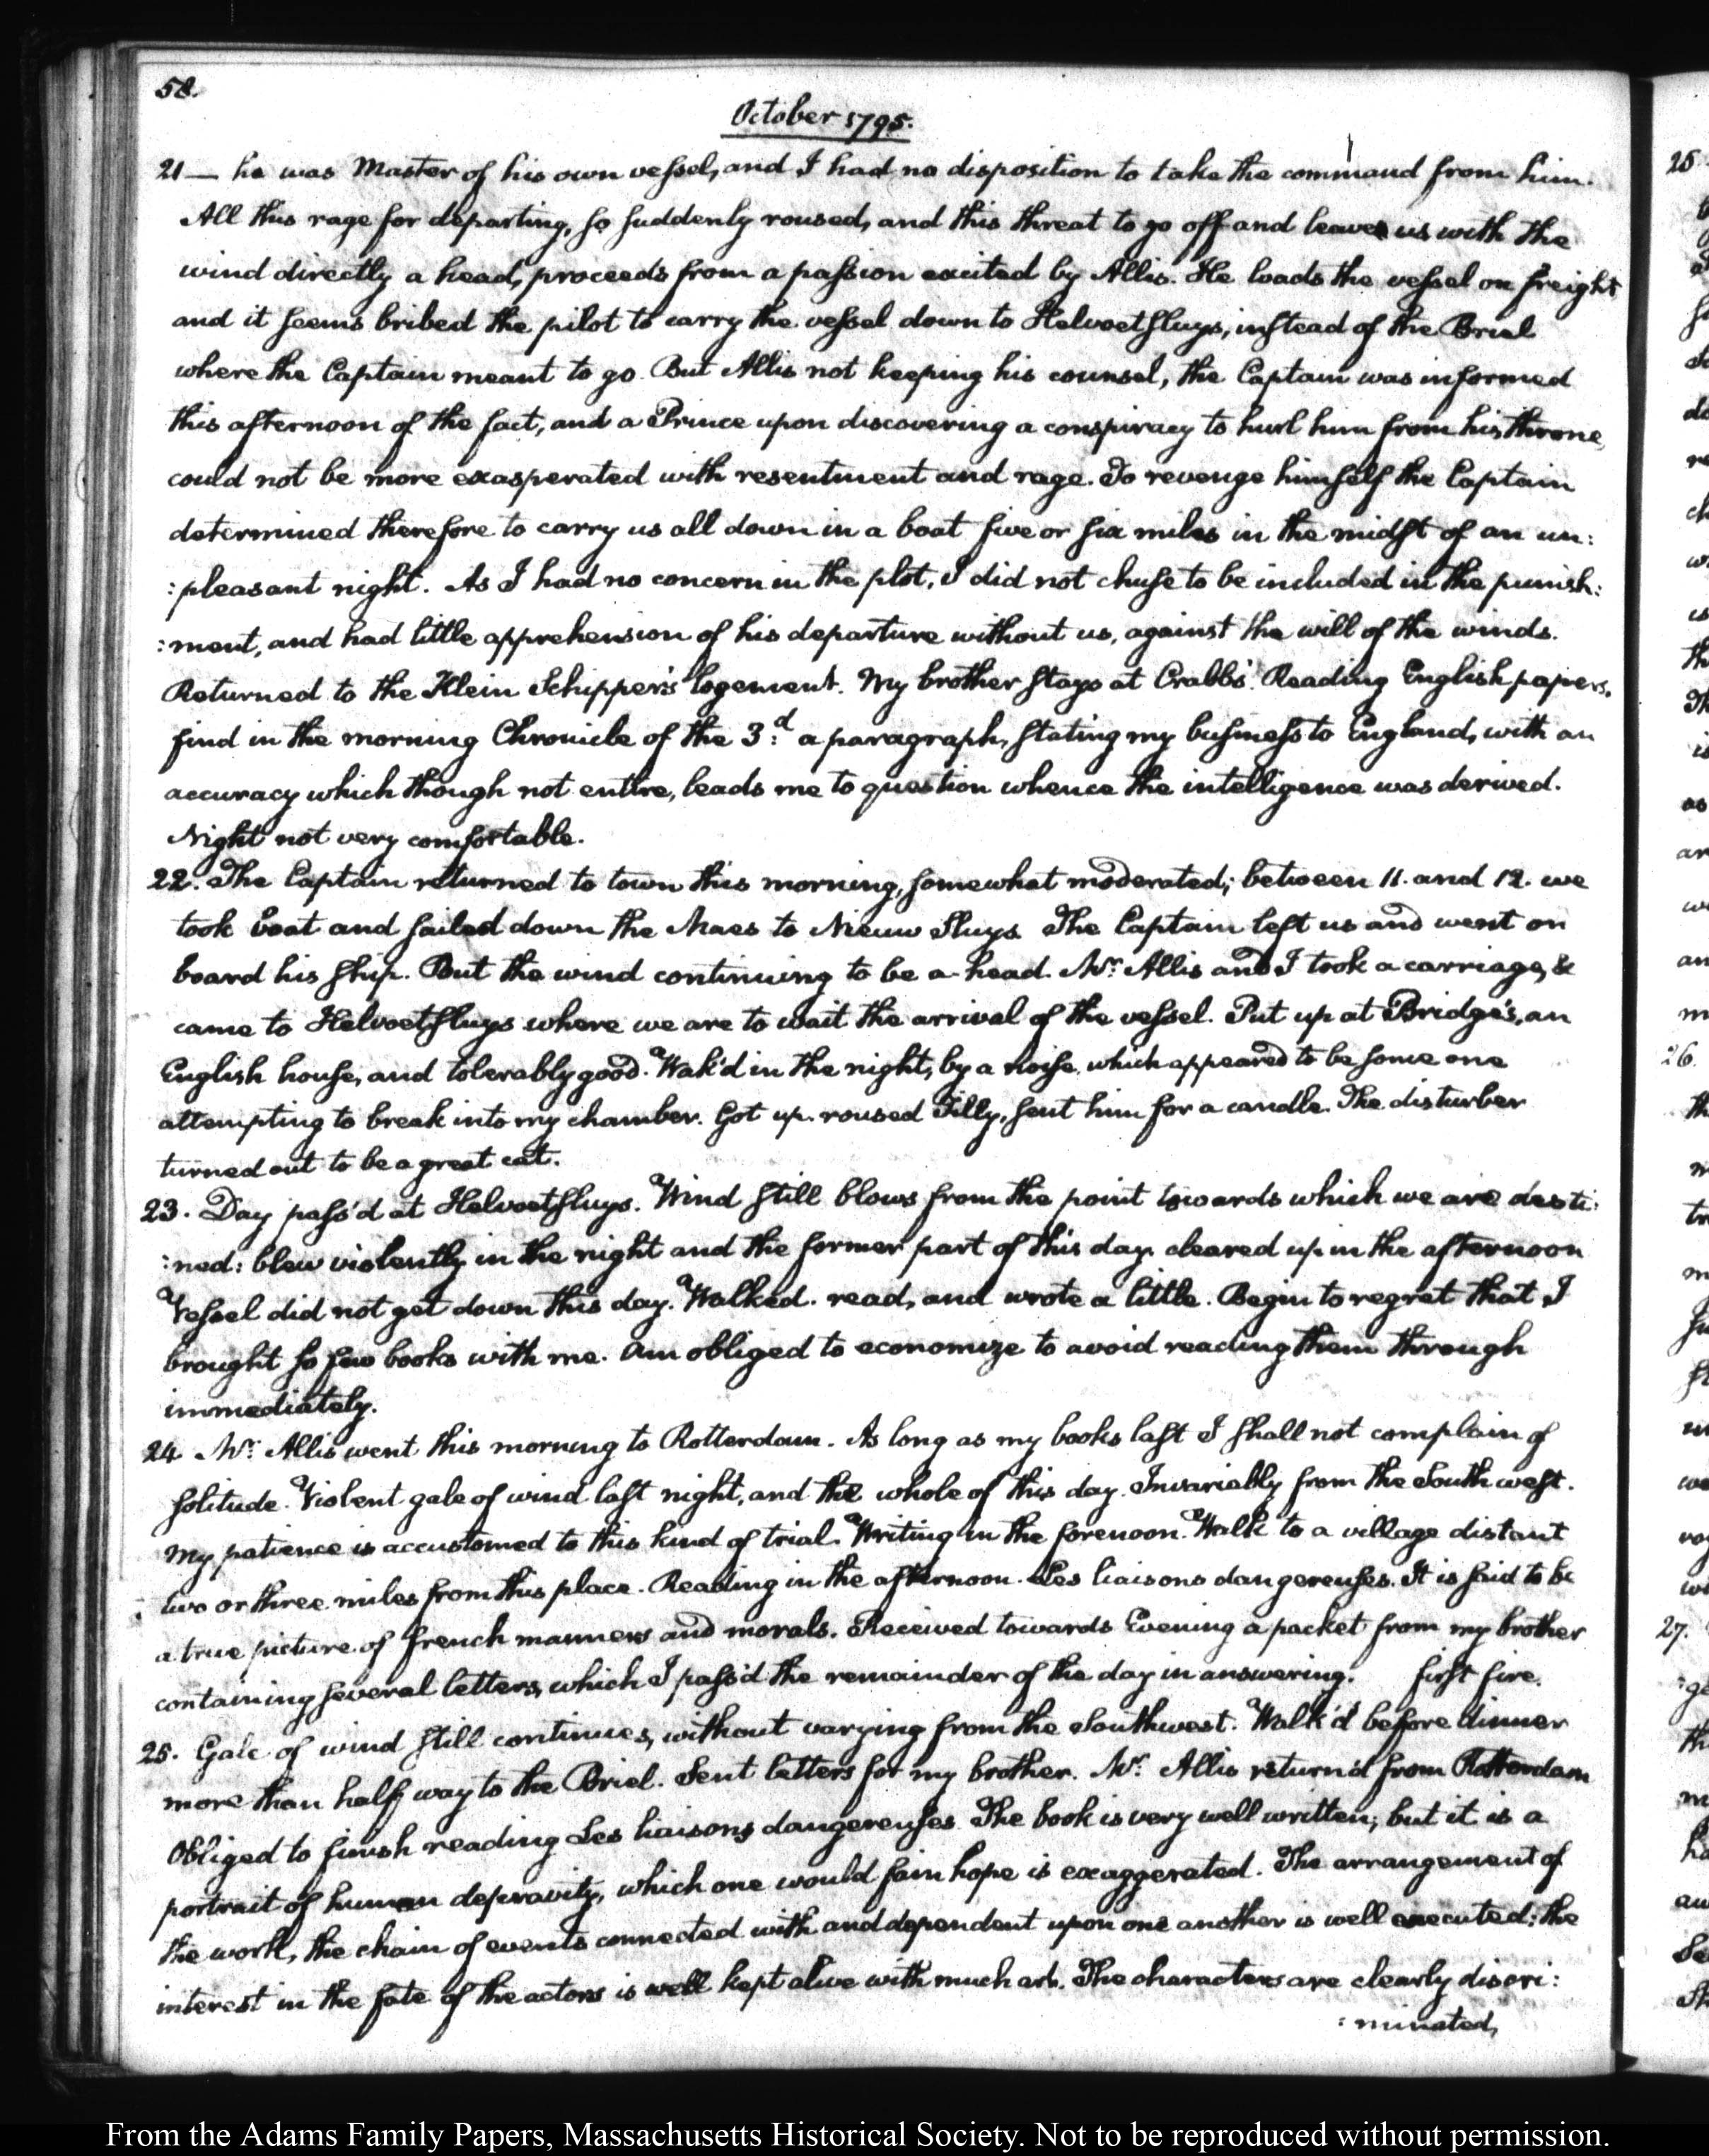 58.
October 1795.
21 — he was Master of his own vessel, and I had no disposition to take the command from him.
All this rage for departing, so suddenly roused, and this threat to go off and leave us with the
wind directly a head, proceeds from a passion excited by Allis. He loads the vessel on freight
and it seems bribed the pilot to carry the vessel down to Helvoetsluys, instead of the Briel
where the Captain meant to go. But Allis not keeping his counsel, the Captain was informed
this afternoon of the fact, and a Prince upon discovering a conspiracy to hurl him from his throne,
could not be more exasperated with resentment and rage. To revenge himself the Captain
determined therefore to carry us all down in a boat five or six miles in the midst of an un:
:pleasant night. As I had no concern in the plot, I did not chuse to be included in the punish:
:ment, and had little apprehension of his departure without us, against the will of the winds.
Returned to the Klein Schippers logement. My brother stays at Crabb's. Reading English papers,
find in the morning Chronicle of the 3:d a paragraph, stating my business to England, with an
accuracy which though not entire, leads me to question whence the intelligence was derived.
Night not very comfortable.
22. The Captain returned to town this morning, somewhat moderated; between 11. and 12. we
took boat and sailed down the Maes to Nieuw Sluys. The Captain left us and went on
board his ship. But the wind continuing to be a-head. Mr: Allis and I took a carriage, &
came to Helvoetsluys where we are to wait the arrival of the vessel. Put up at Bridge's, an
English house, and tolerably good. Wak'd in the night, by a noise, which appeared to be some one
attempting to break into my chamber. Got up. roused Tilly, sent him for a candle. The disturber
turned out to be a great cat.
23. Day pass'd at Helvoetsluys. Wind still blows from the point towards which we are desti:
:ned: blew violently in the night and the former part of this day. cleared up in the afternoon
Vessel did not get down this day. Walked. read, and wrote a little. Begin to regret that I
brought so few books with me. Am obliged to economize to avoid reading them through
immediately.
24. Mr: Allis went this morning to Rotterdam. As long as my books last I shall not complain of
solitude. Violent gale of wind last night, and the whole of this day. Invariably from the South west.
My patience is accustomed to this kind of trial. Writing in the forenoon. Walk to a village distant
two or three miles from this place. Reading in the afternoon. Les liaisons dangereuses. It is said to be
a true picture of french manners and morals. Received towards Evening a packet from my brother
containing several letters, which I pass'd the remainder of the day in answering. first fire.
25. Gale of wind still continues, without varying from the Southwest. Walk'd before dinner
more than half way to the Briel. Sent letters for my brother. Mr: Allis return'd from Rotterdam
Obliged to finish reading Les liaisons dangereuses. The book is very well written; but it is a
portrait of human depravity, which one would fain hope is exaggerated. The arrangement of
the work, the chain of events connected with and dependent upon one another is well executed: the
interest in the fate of the actors is well kept alive with much art. The characters are clearly discri:
:minated,
From the Adams Family Papers, Massachusetts Historical Society. Not to be reproduced without permission.